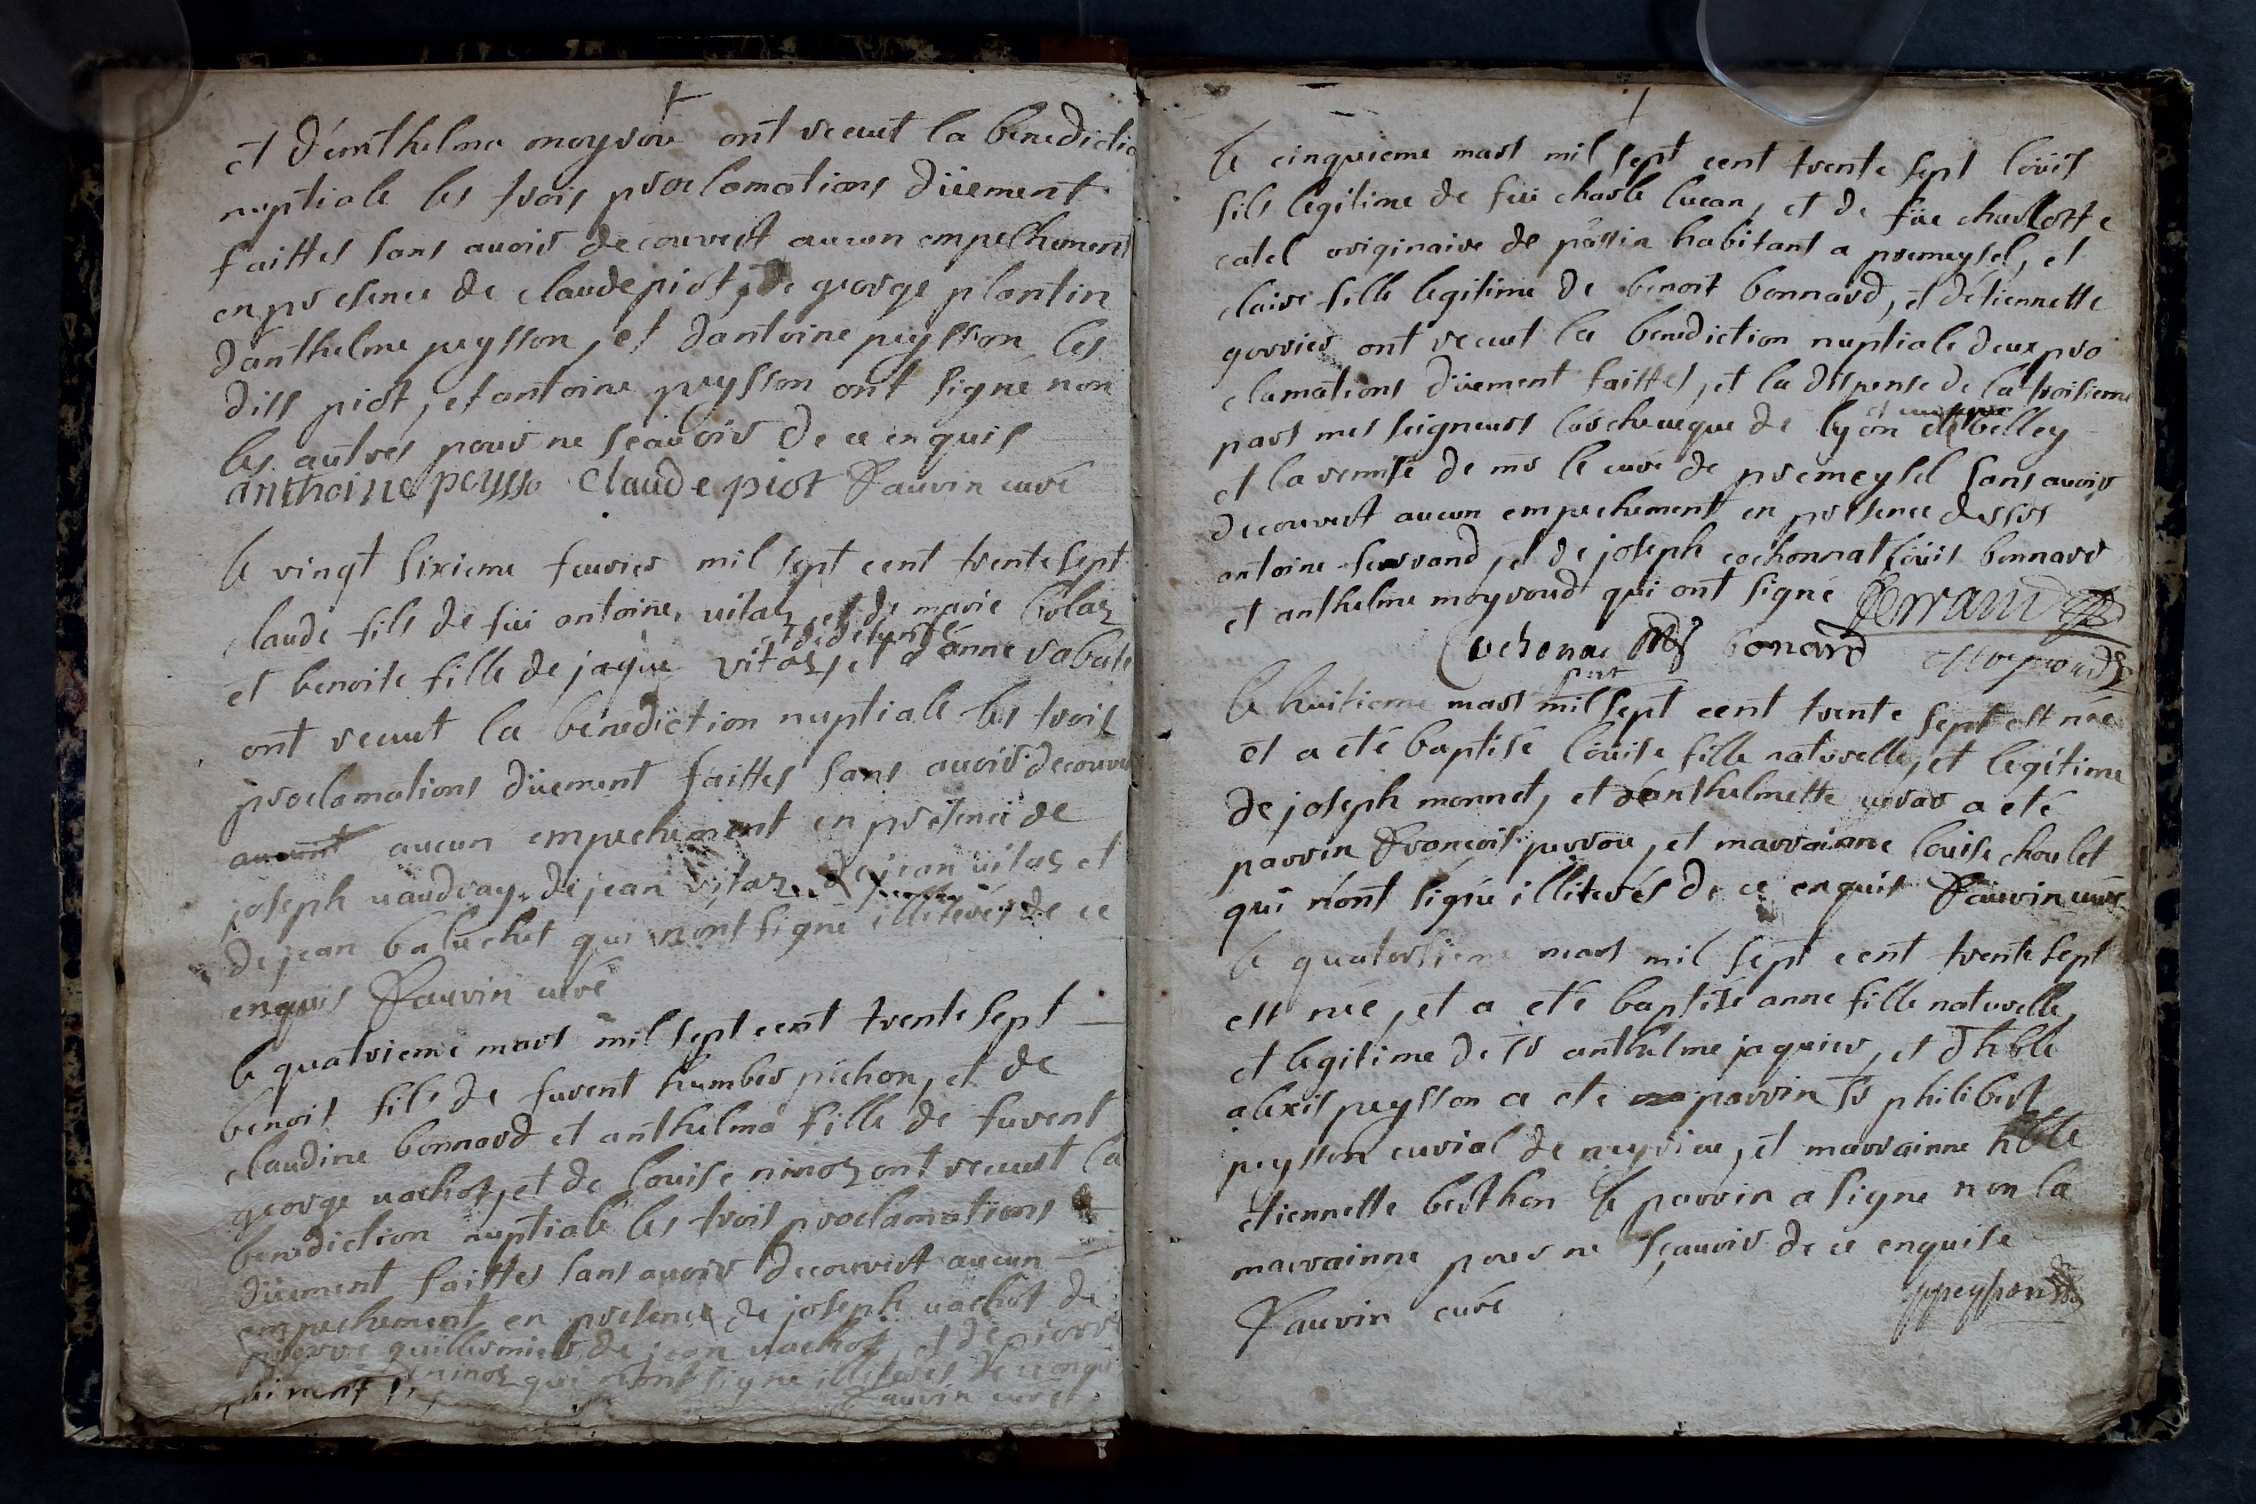 et d'anthelma moyrou ont recut la benedictio
nuptiale les trois proclamations düement
faittes sans avoir decouvert aucun empechement
en presence de claude piot, de george plantin
d'anthelme peysson, et dantoine peysson les
dits piot, et antoine peysson ont signé non
les autres pour ne sçauoir de ce enquis
anthoine peysso claude piot Fauvin curé
le vingt sixieme feurier mil sept cent trente sept
claude fils de fui antoine uitaz et de marie bolaz
et benoite fille de jaque vitaz, et d'anne rabut
ont recut la benediction nuptiale les trois
proclamations düement faittes sans avoir decouve
aucunt aucun empechement en presence de
joseph uaudray, de jean vitaz, de jean uitaz et
de jean baluchet qui n'ont signé illiterés de ce
enquis Fauvin curé
le quatrieme mars mil sept cent trente sept
benoit fils de furent humber pichon, et de
claudine bonnard et anthelma fille de furent
george uachot, et de louise ninoz ont recut la
benediction nuptiale les trois proclamations
düement faittes sans avoir decouvert aucun
empechement en presence de joseph uachot de
pierre guillermier de jean uachot, et de pierre
ninoz qui n'ont signé illiterés de ce enqui
Fauvin curé
le cinquieme mars mil sept cent trente sept loüis
fils legitime de fui charle lucan, et de füe charlotte
catel originaire de passin habitant a premeysel, et
claire fille legitime de benoit bonnard, et d'étiennette
gorrier ont recut la benediction nuptiale deux pro
clamations düement faittes, et la dispense de la troisieme
pars mes seigneurs l'archeueque de lyon et belley
et la remise de mr le curé de premeysel sans avoir
decouvert aucun empechement en presence de srs
antoine ferrand, et de joseph cochonnat loüis bonnard
et anthelme moyroud qui ont signé ferrand
Cochona bonard Moyroud
le huitieme mars mil sept cent trente sept est née
et a eté baptisé loüise fille naturelle, et legitime
de joseph monnet, et d'anthelmette uerar a eté
parrin François perrou, et marrainne louise choulet
qui n'ont signé illiterés de ce enquis Fauvin curé
le quatorsieme mars mil sept cent trente sept
est née, et a eté baptisé anne fille naturelle,
et legitime de sr anthelme jaquier, et d'hble
alexis peysson a eté parrin sr philibert
peysson curial de meyrieu, et marrainne hble
etiennette berthon le parrin a signe non la
marrainne pour ne sçauoir de ce enquise
Fauvin curé ppeysson